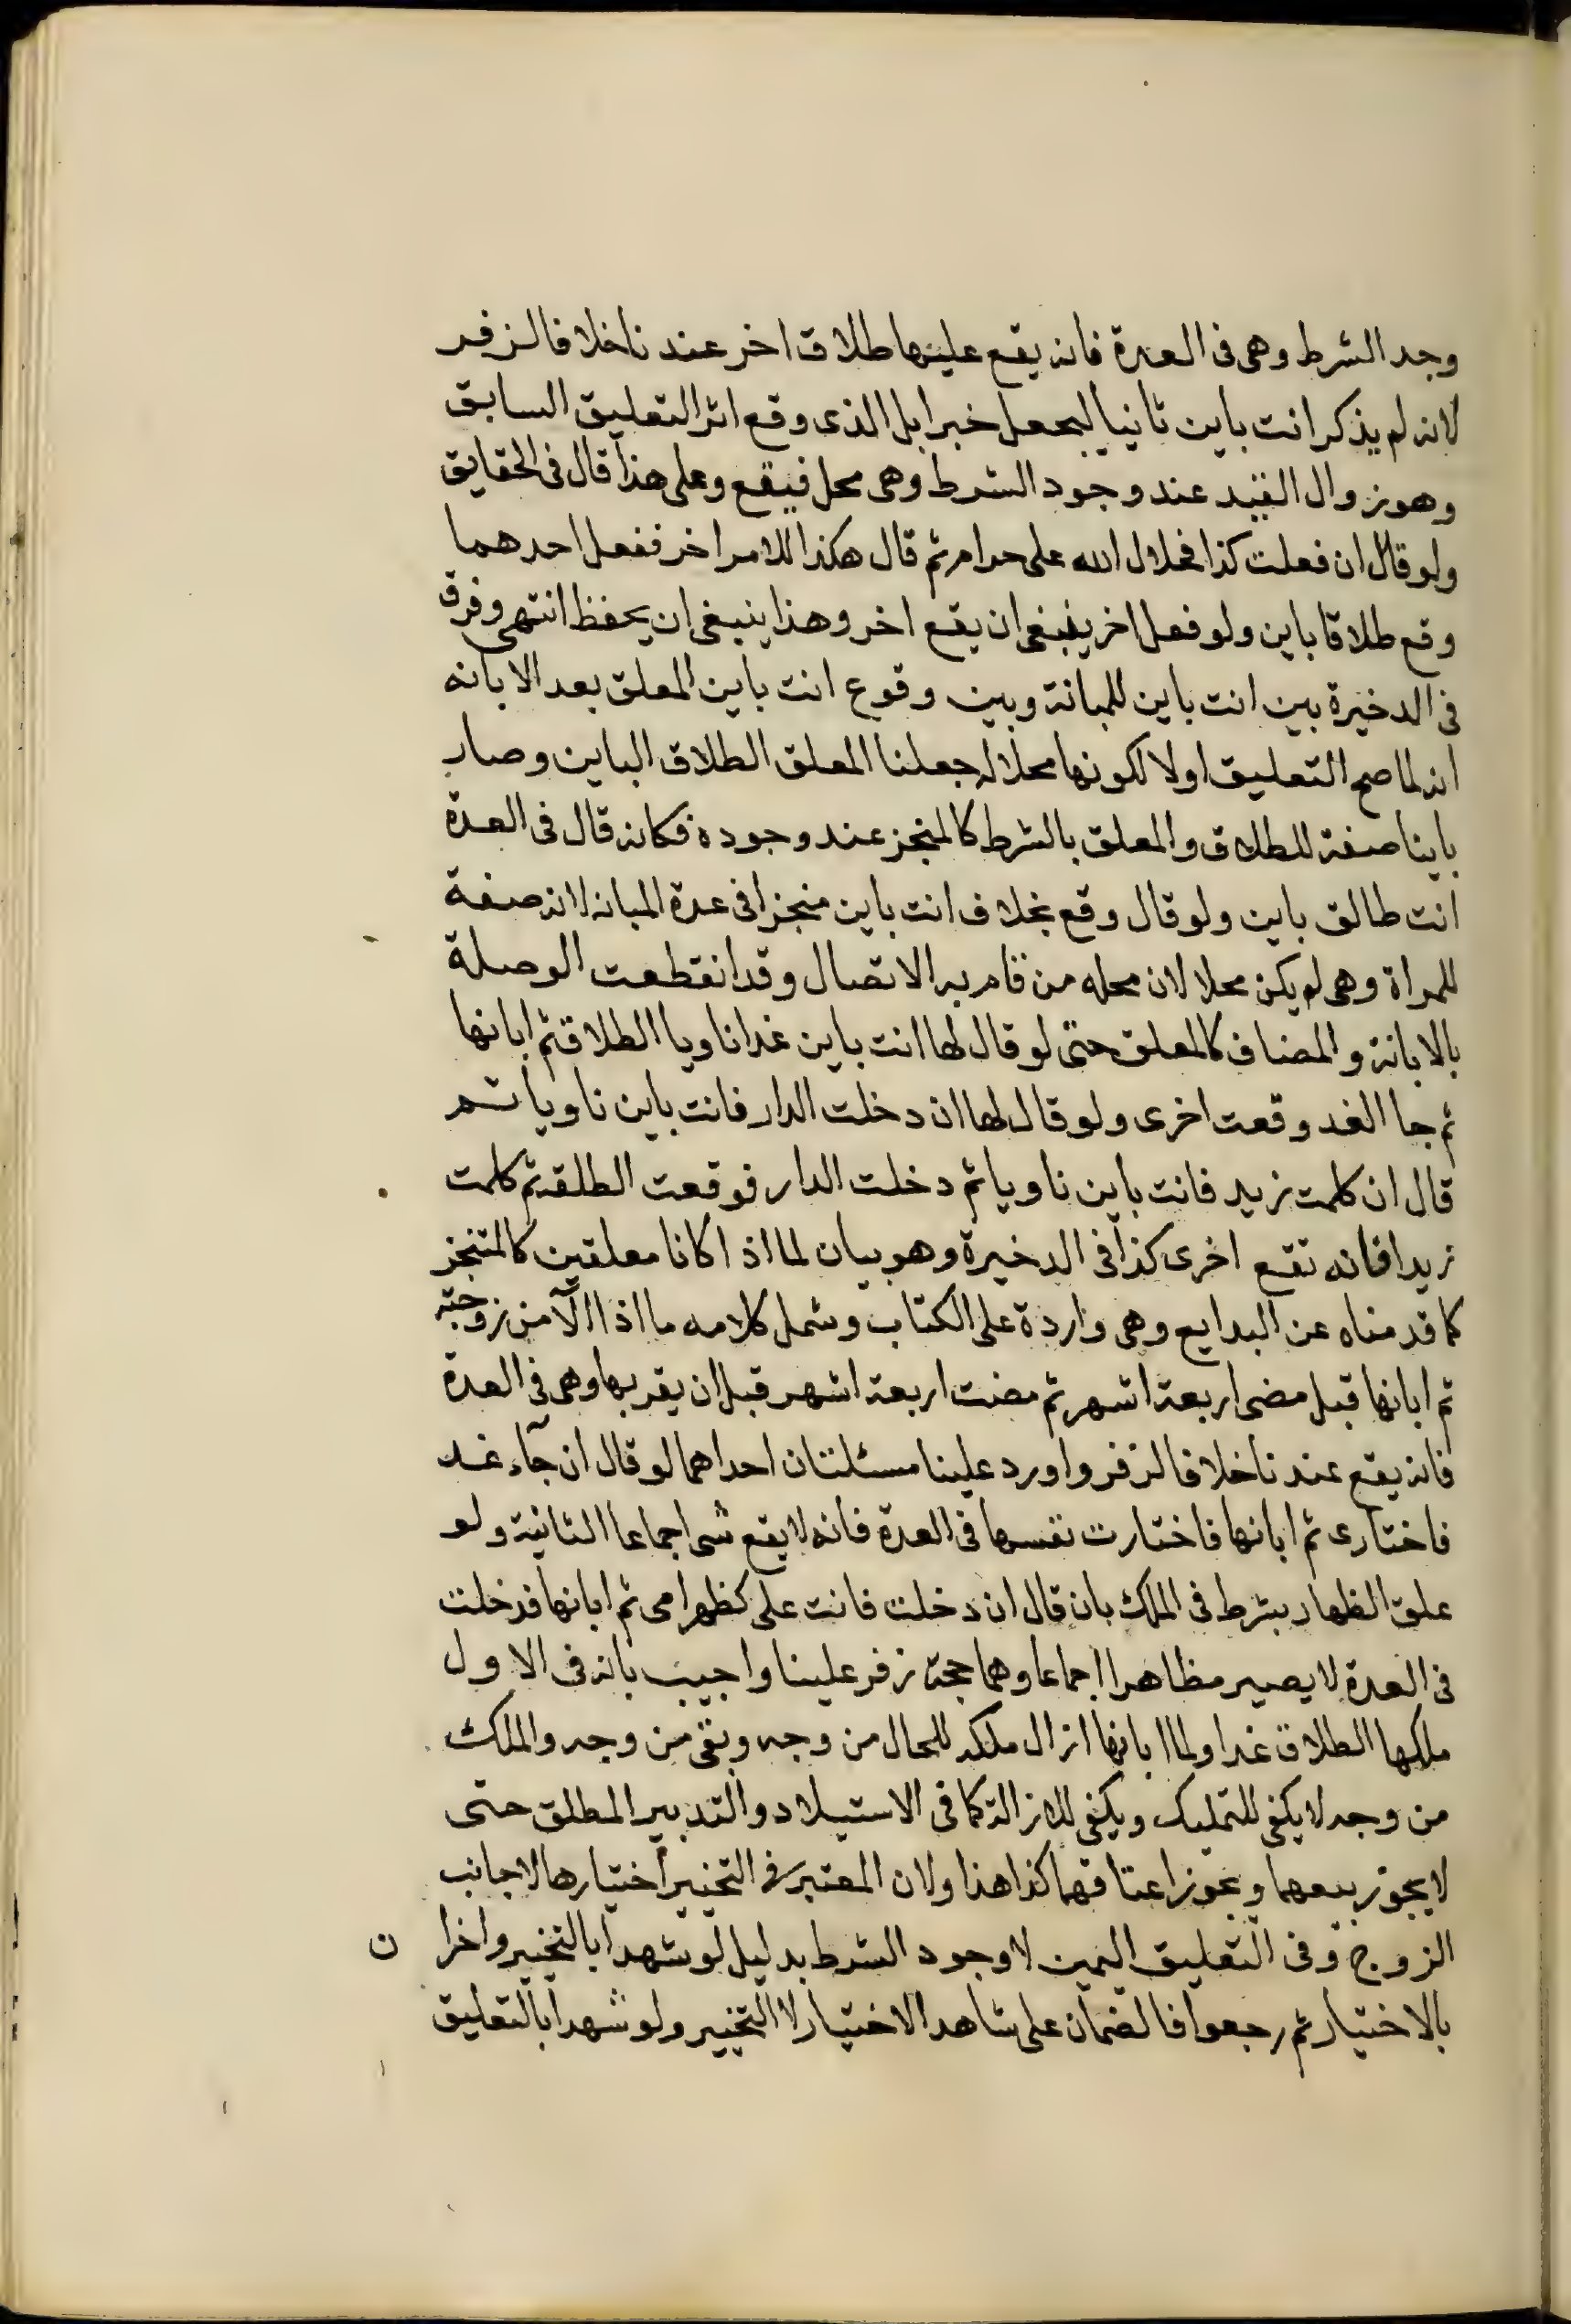 وجد الشرط وهى فى العدة فانه يقع عليها طلاق اخر عندنا خلافا لزفر
لانه لم يذكر انت باين ثانيا ليجعل خبرا بل الذى وقع اثر التعليق السابق
وهو زوال القيد عند وجود الشرط وهى محل فيقع وعلى هذا قال فى الحقايق
ولو قال ان فعلت كذا فحلال الله على حرام ثم قال هكذا للامر اخر ففعل احدهما
وقع طلاقا باين ولو فعل اخر ينبغى ان يقع اخر وهذا ينبغى ان يحفظ انتهى وفرق
فى الدخيرة بين انت باين للمبانة وبين وقوع انت باين المعلق بعد الابانه
انه لما صح التعليق اولا لكونها محلا له جعلنا المعلق الطلاق الباين وصار
باينا صفة للطلاق والمعلق بالشرط كالمنجز عند وجوده فكانه قال فى العدة
انت طالق باين ولو قال وقع بخلاف انت باين منجزا فى عدة المبانه لانه صفة
للمراة وهى لم يكن محلا لان محله من قام به الاتصال وقد انقطعت الوصلة
بالابانة والمضاف كالمعلق حتى لو قال لها انت باين غدا ناويا الطلاق ثم ابانها
ثم جا الغد وقعت اخرى ولو قال لها ان دخلت الدار فانت باين ناويا ثم
قال ان كلمت زيد فانت باين ناويا ثم دخلت الدار فوقعت الطلقة ثم كلمت
زيدا فانه تقع اخرى كذا فى الدخيرة وهو بيان لما اذا كانا معلقين كالمتنجز
كما قدمناه عن البدايع وهى واردة على الكتاب وشمل كلامه ما اذا الآ من زوجته
ثم ابانها قبل مضى اربعة اشهر ثم مضت اربعة اشهر قبل ان يقربها وهى فى العدة
فانه يقع عندنا خلافا لزفر واورد علينا مسئلتان احداهما لو قال ان جآء غد
فاختارى ثم ابانها فاختارت نفسها فى العدة فانه لا يقع شى اجماعا الثانية ولو
علق الظهار بشرط فى الملك بان قال ان دخلت فانت على كظهر امى ثم ابانها فدخلت
فى العدة لا يصير مظاهرا اجماعا وهما حجة زفر علينا واجيب بانه فى الاول
ملكها الطلاق غدا ولما ابانها ازال ملكه للحال من وجه وبقى من وجه والملك
من وجه لا يكفى للتمليك ويكفى للازالة كما فى الاستيلاد والتدبير المطلق حتى
لا يجوز بيعهما ويجوز اعتاقهما كذا هذا ولان المعتبر فى التخيير اختيارها لا جانب
الزوج وفى التعليق اليمين لا وجود الشرط بدليل لو شهدا بالتخيير واخرا ن
بالاختيار ثم رجعوا فالضمان على شاهد الاختيار لا التخيير ولو شهدا بالتعليق